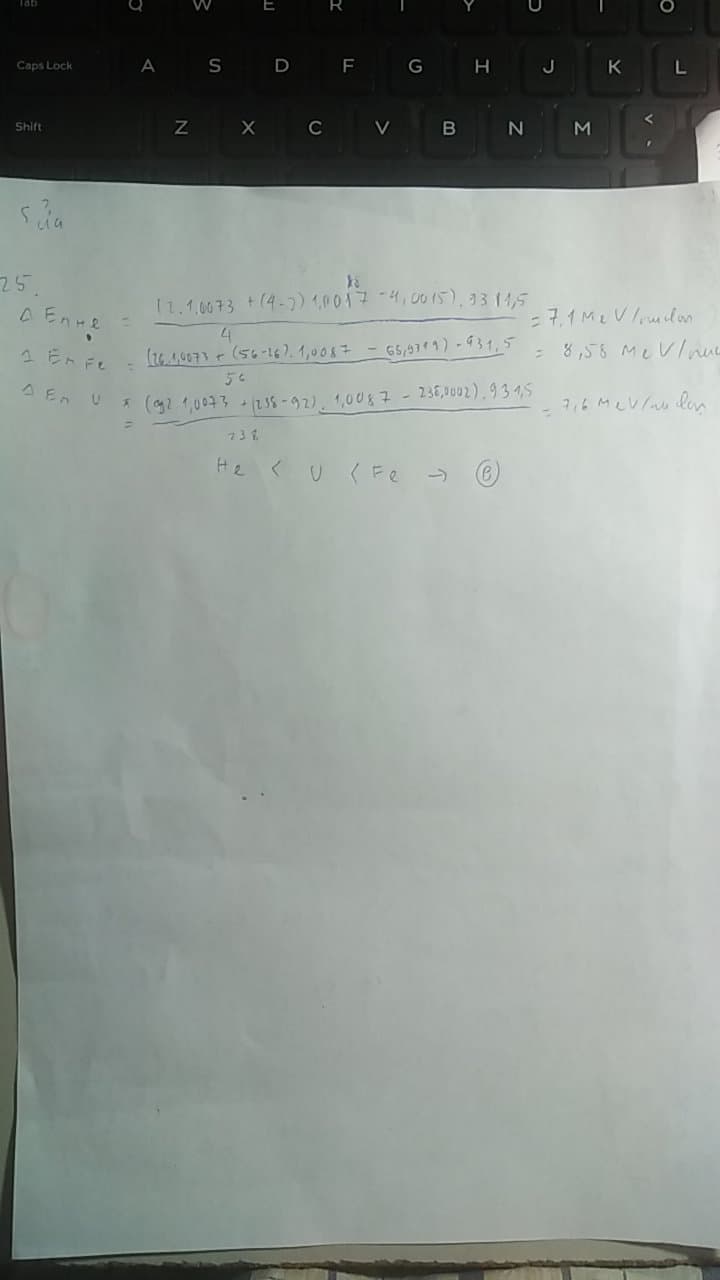 Tab Q W E R T Y U I O
Caps Lock A S D F G H J K L
Shift Z X C V B N M < ,
25.
Δ En He = (2.1,0073 + (4-2) 1,0087 - 4,0015).931,5 / 4 = 7,1 MeV/nuclon
Δ En Fe = (26.1,0073 + (56-26).1,0087 - 55,9349) - 931,5 / 56 = 8,58 MeV/nuc
Δ En U = (92 1,0073 + (238-92).1,0087 - 238,0002).931,5 / 238 = 7,6 MeV/nuclon
He < U < Fe → B